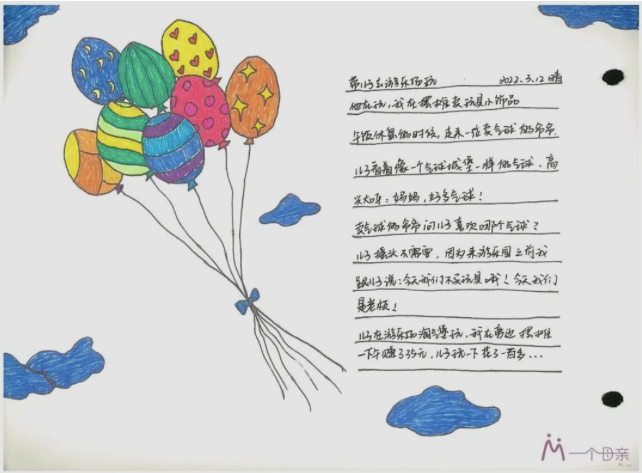 带儿子去游乐场玩 2022.3.12 晴
他在玩，我在摆摊卖玩具小饰品
午饭休息的时候，走来一位卖气球的爷爷
儿子看着像一个气球城堡一样的气球，高
兴大喊：妈妈，好多气球！
卖气球的爷爷问儿子喜欢哪个气球？
儿子摇头不需要，因为来游乐园之前我
跟儿子说：今天我们不买玩具哦！今天我们
是老板！
儿子在游乐场淘气堡玩，我在旁边摆摊
一下午赚了35元，儿子玩一下花了一百多...
一个母亲